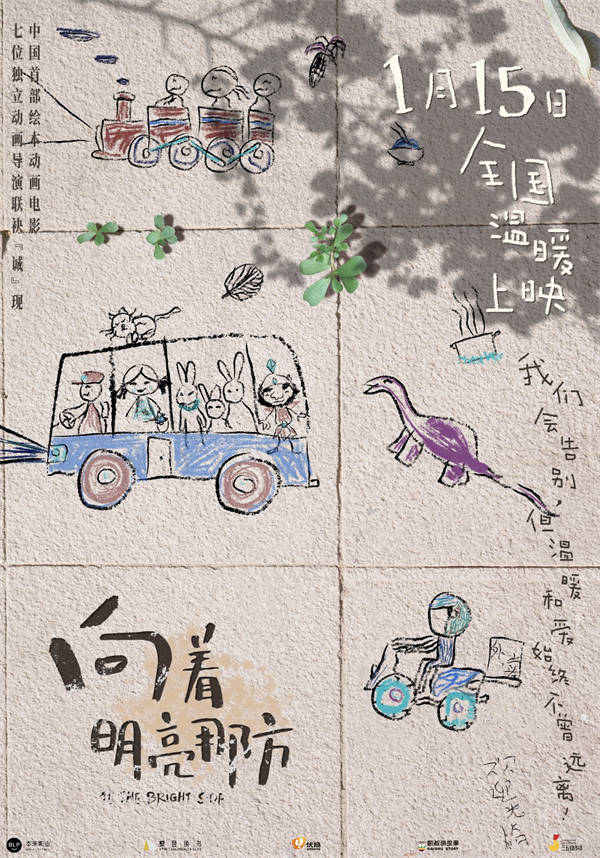 中国首部绘本动画电影
七位独立动画导演联袂『诚』现
1月15日
全国
温暖
上映
我们会告别，但温暖和爱始终不曾远离！
外卖
欢迎光临
向着
明亮那方
TO THE BRIGHT SIDE
BLP
本来影业
凯叔讲故事
KAISHU STORY